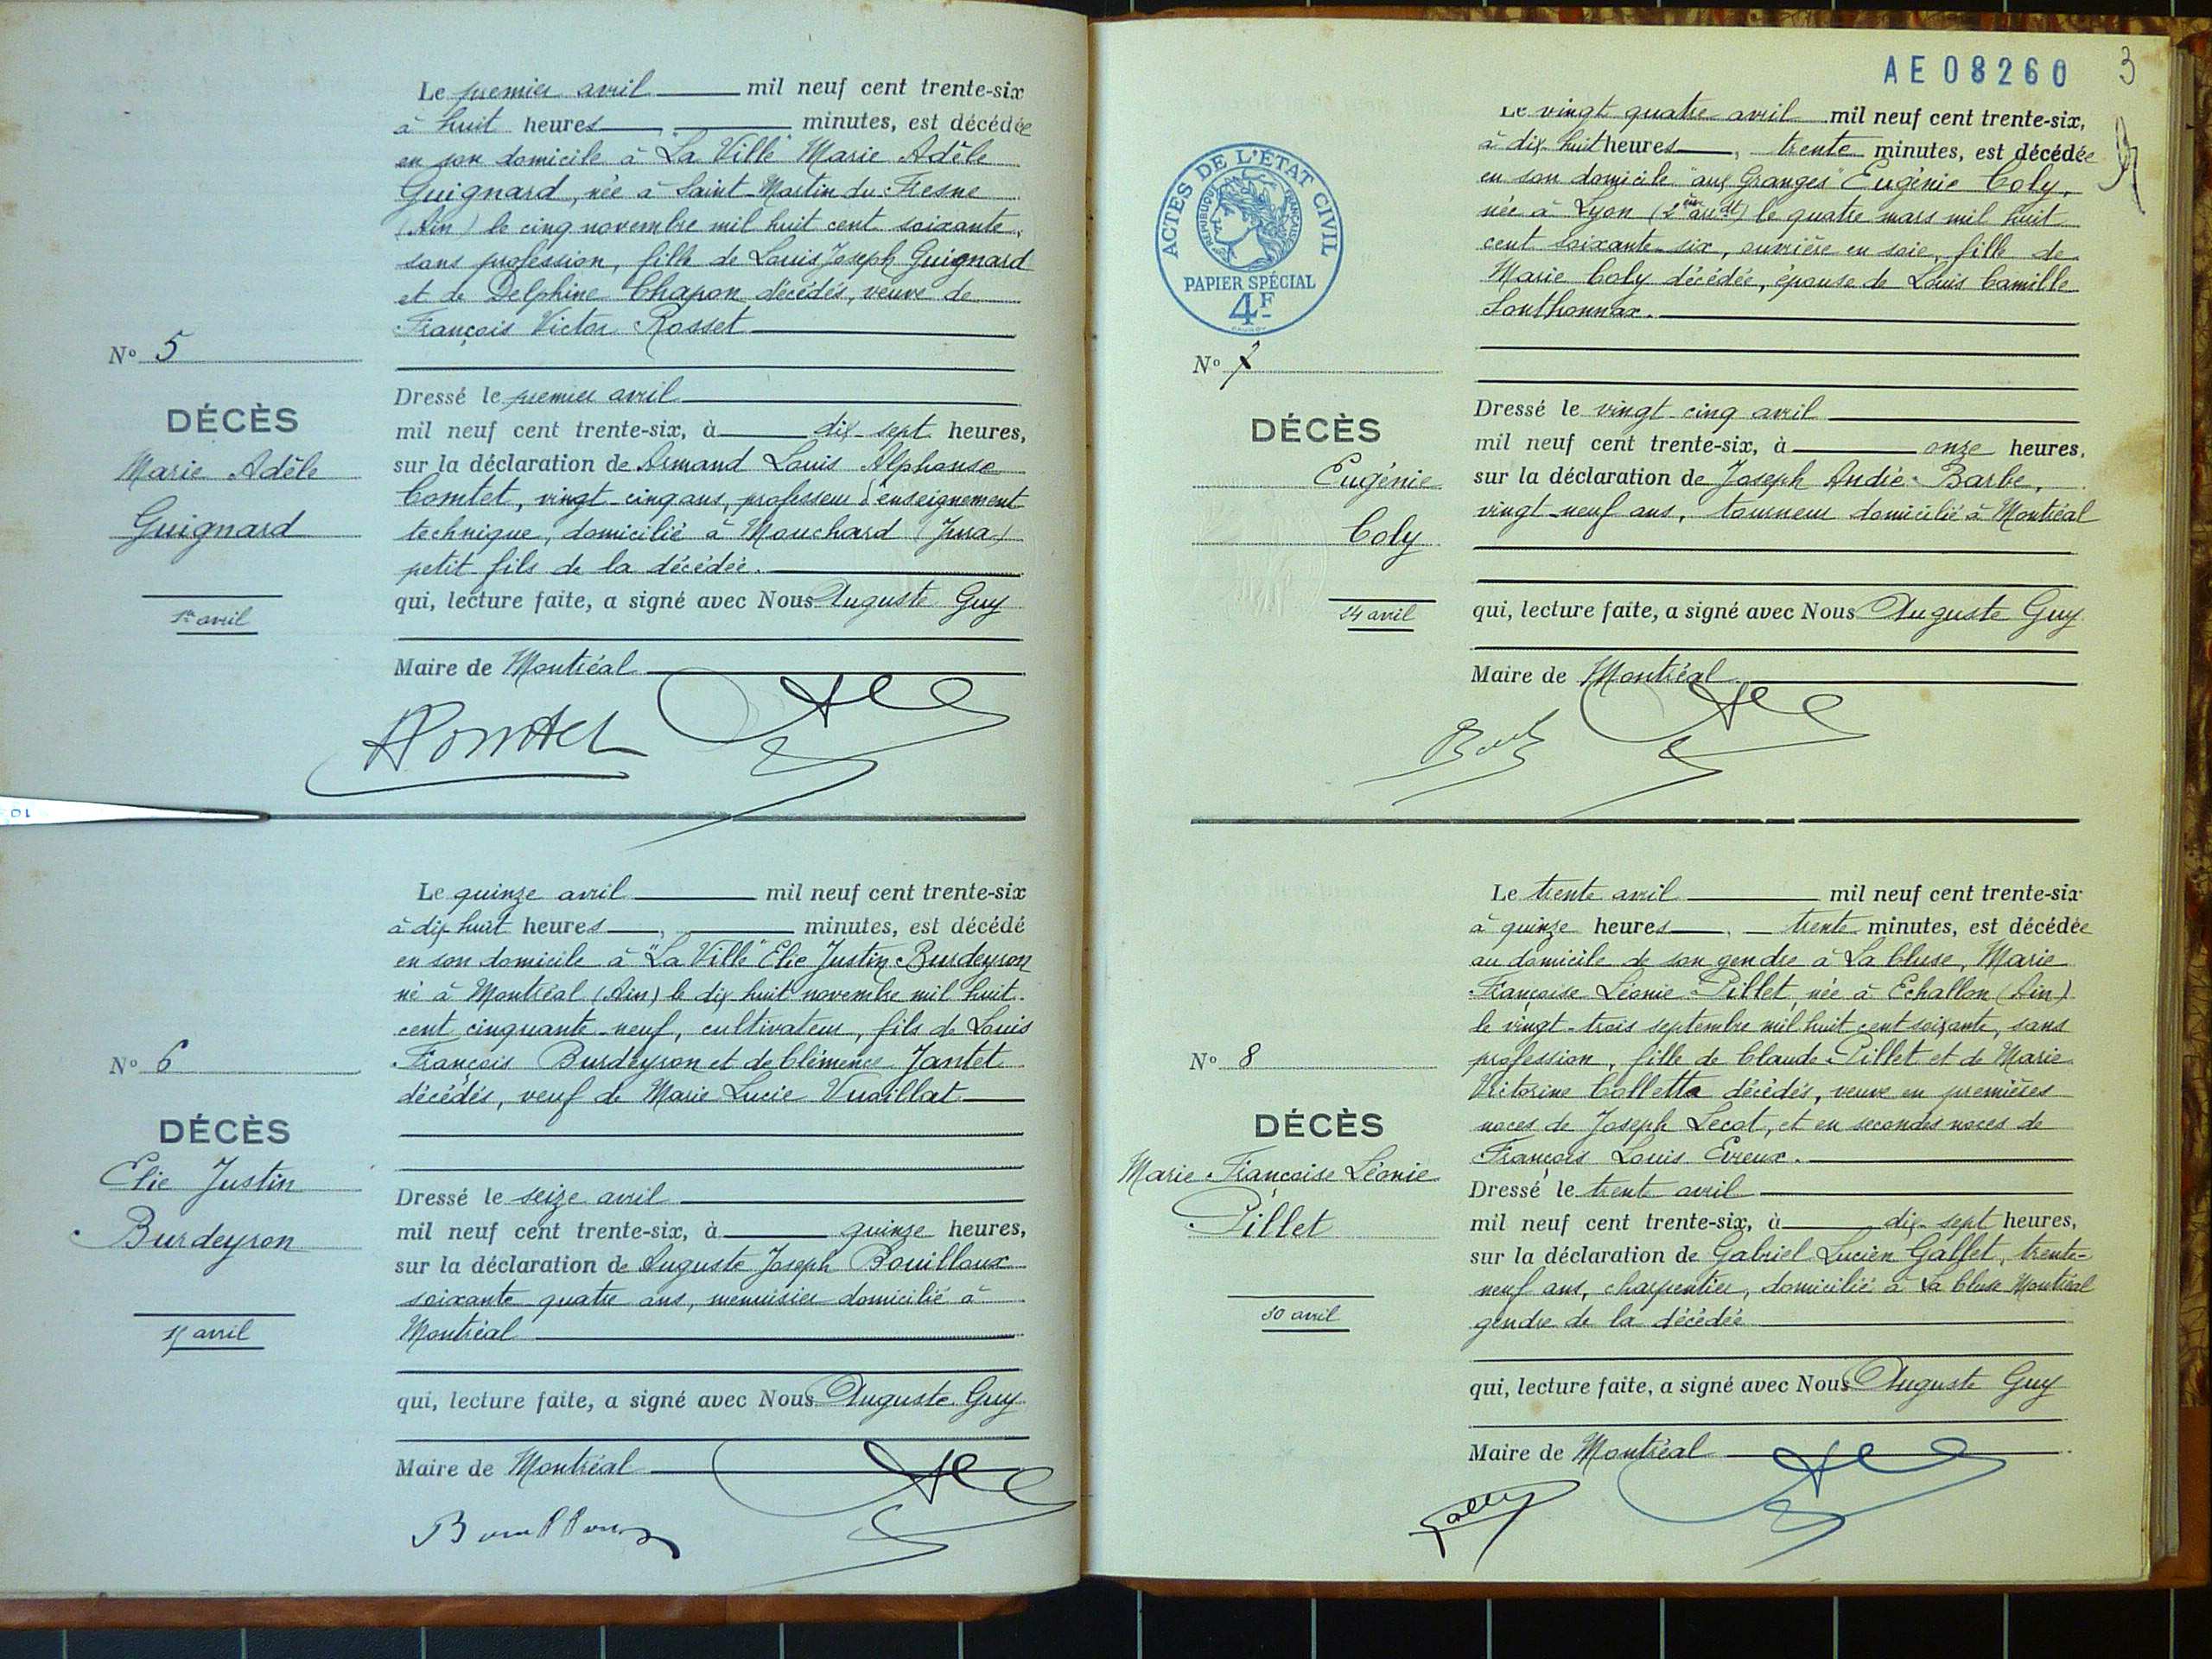 Le premier avril mil neuf cent trente-six
à huit heures, minutes, est décédée
en son domicile à "La Ville" Marie Adèle
Guignard, née à Saint-Martin-du-Fresne
(Ain) le cinq novembre mil huit cent soixante,
sans profession, fille de Louis Joseph Guignard
et de Delphine Chapon décédés, veuve de
François Victor Rosset
Nº 5
DÉCÈS
Marie Adèle
Guignard
1er avril
Dressé le premier avril
mil neuf cent trente-six, à dix-sept heures,
sur la déclaration de Armand Louis Alphonse
Comtet, vingt-cinq ans, professeur d'enseignement
technique, domicilié à Mouchard (Jura)
petit-fils de la décédée.
qui, lecture faite, a signé avec Nous Auguste Guy
Maire de Montréal
AComtet
Le quinze avril mil neuf cent trente-six
à dix-huit heures, minutes, est décédé
en son domicile à "La Ville" Elie Justin Burdeyron
né à Montréal (Ain) le dix huit novembre mil huit
cent cinquante-neuf, cultivateur, fils de Louis
François Burdeyron et de Clémence Jantet
décédés, veuf de Marie Lucie Vuaillat
Nº 6
DÉCÈS
Elie Justin
Burdeyron
15 avril
Dressé le seize avril
mil neuf cent trente-six, à quinze heures,
sur la déclaration de Auguste Joseph Bouilloux
soixante-quatre ans, menuisier domicilié à
Montréal
qui, lecture faite, a signé avec Nous Auguste Guy
Maire de Montréal
Bouilloux
AE08260
3
ACTES DE L'ÉTAT CIVIL
RÉPUBLIQUE FRANÇAISE
PAPIER SPÉCIAL
4F
Le vingt quatre avril mil neuf cent trente-six,
à dix-huit heures, trente minutes, est décédée
en son domicile "aux Granges" Eugénie Coly,
née à Lyon (2ème arrdt) le quatre mars mil huit
cent soixante-six, ouvrière en soie, fille de
Marie Coly décédée, épouse de Louis Camille
Sonthonnax.
Nº 7
DÉCÈS
Eugénie
Coly
24 avril
Dressé le vingt-cinq avril
mil neuf cent trente-six, à onze heures,
sur la déclaration de Joseph André Barbe,
vingt-neuf ans, tourneur domicilié à Montréal
qui, lecture faite, a signé avec Nous Auguste Guy
Maire de Montréal
Le trente avril mil neuf cent trente-six
à quinze heures, trente minutes, est décédée
au domicile de son gendre à La Cluse, Marie
Françoise Léonie Pillet née à Echallon (Ain)
le vingt-trois septembre mil huit cent soixante, sans
profession, fille de Claude Pillet et de Marie
Victorine Colletta décédés, veuve en premières
noces de Joseph Lecot, et en secondes noces de
François Louis Evreux.
Nº 8
DÉCÈS
Marie Françoise Léonie
Pillet
30 avril
Dressé le trent avril
mil neuf cent trente-six, à dix-sept heures,
sur la déclaration de Gabriel Lucien Gallet, trente-
neuf ans, charpentier, domicilié à La Cluse Montréal
gendre de la décédée
qui, lecture faite, a signé avec Nous Auguste Guy
Maire de Montréal